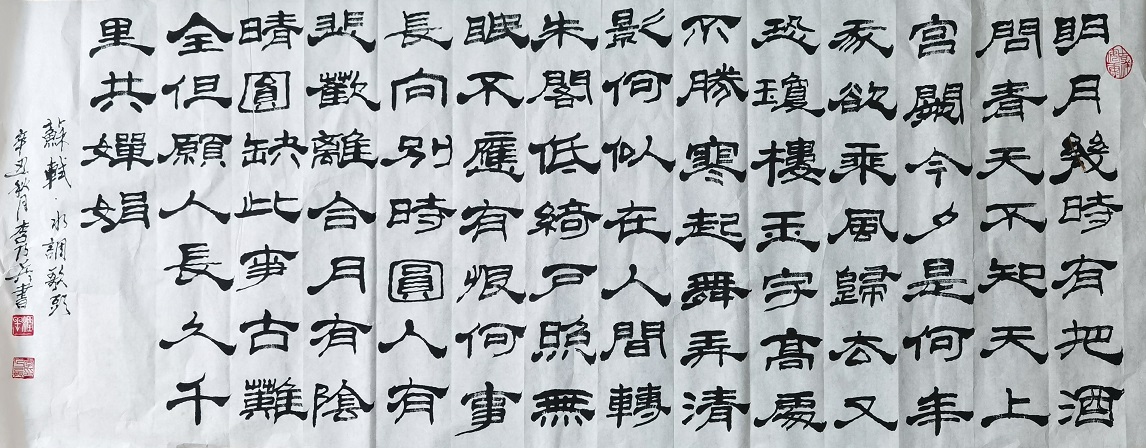 明月幾時有把酒
問青天不知天上
宮闕今夕是何年
我欲乘風歸去又
恐瓊樓玉宇高處
不勝寒起舞弄清
影何似在人間轉
朱閣低綺戶照無
眠不應有恨何事
長向別時圓人有
悲歡離合月有陰
晴圓缺此事古難
全但願人長久千
里共嬋娟
蘇軾·水調歌頭
辛丑秋月李乃書